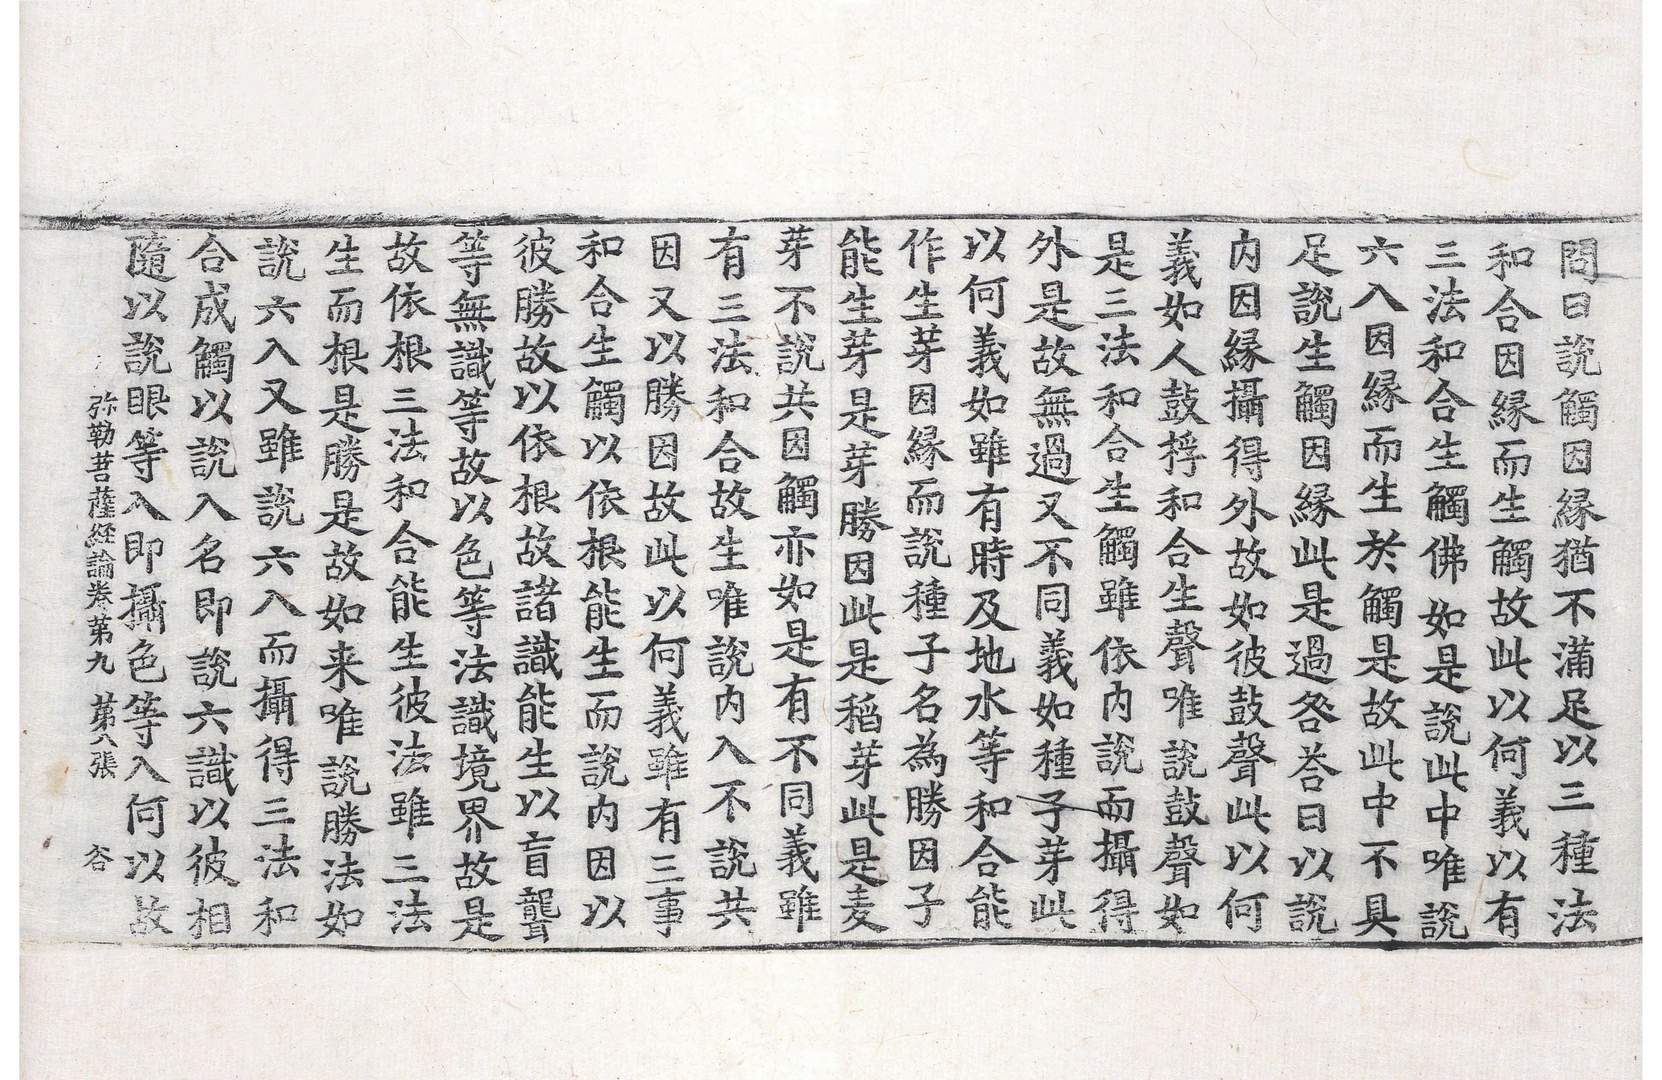 問曰說觸因縁猶不滿足以三種法
和合因縁而生觸故此以何義以有
三法和合生觸佛如是說此中唯說
六入因縁而生於觸是故此中不具
足說生觸因縁此是過咎荅曰以說
内因縁攝得外故如彼鼓聲此以何
義如人鼓桴和合生聲唯說鼓聲如
是三法和合生觸雖依内說而攝得
外是故無過又不同義如種子芽此
以何義如雖有時及地水等和合能
作生芽因縁而說種子名為勝因子
能生芽是芽勝因此是稻芽此是麦
芽不說共因觸亦如是有不同義雖
有三法和合故生唯說内入不說共
因又以勝因故此以何義雖有三事
和合生觸以依根能生而說内因以
彼勝故以依根故諸識能生以盲聾
等無識等故以色等法識境界故是
故依根三法和合能生彼法雖三法
生而根是勝是故如来唯說勝法如
說六入又雖說六入而攝得三法和
合成觸以說入名即說六識以彼相
隨以說眼等入即攝色等入何以故
弥勒菩薩経論卷第九　第八張　谷